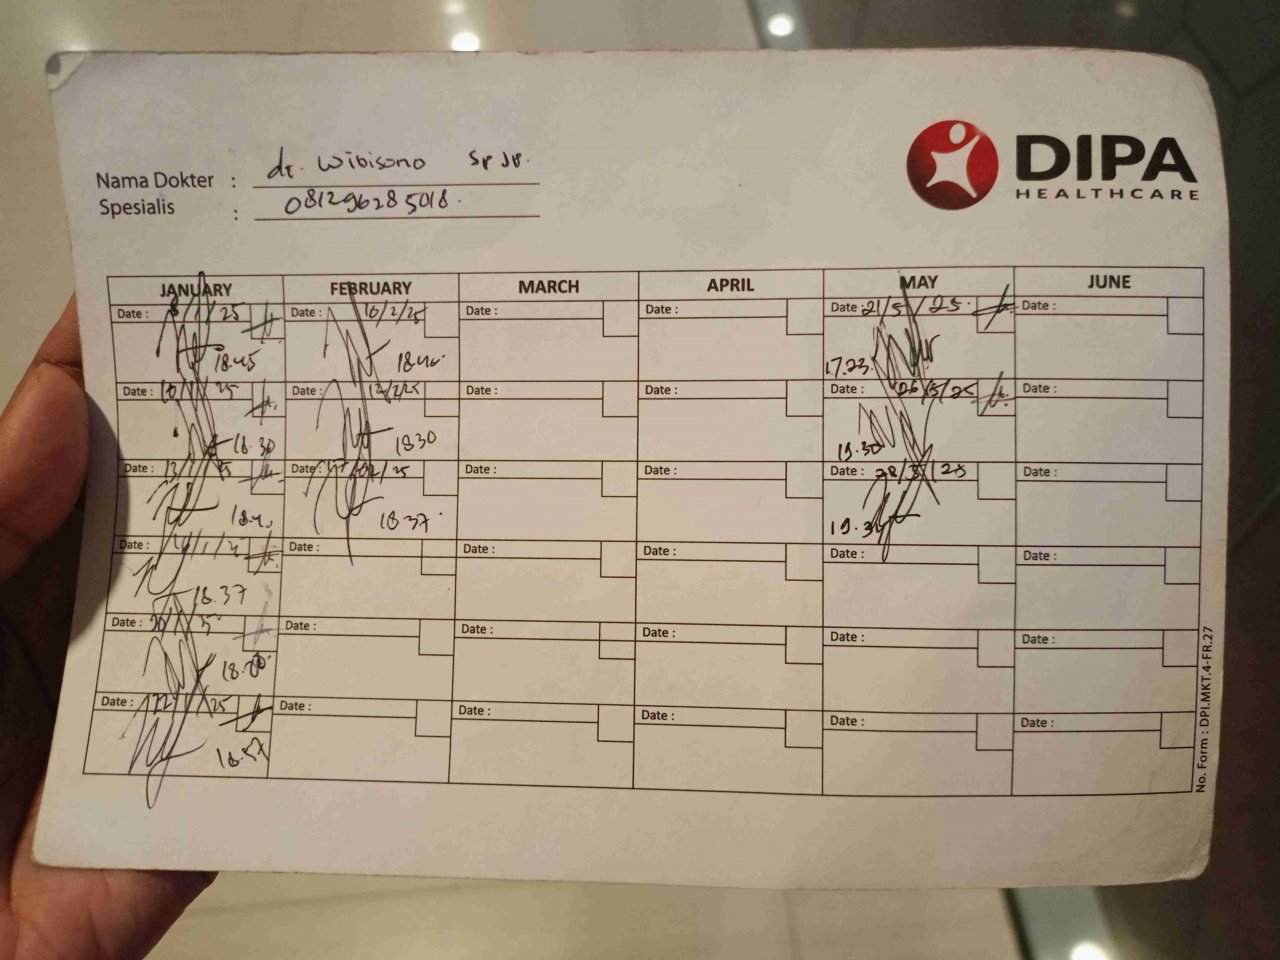 DIPA
HEALTHCARE
Nama Dokter : dr. Wibisono Sp JP.
Spesialis : 081296285018.
JANUARY FEBRUARY MARCH APRIL MAY JUNE
Date : 8/1/25 Date : 10/2/25 Date : Date : Date : 21/5/25 Date :
18.45 17.23
Date : 10/1/25 Date : 12/2/25 Date : Date : Date : 26/5/25 Date :
18.30 1830 19.30
Date : 13/1/25 Date : Date : Date : Date : 28/5/25 Date :
18.37 19.34
Date : Date : Date : Date : Date : Date :
18.37
Date : Date : Date : Date : Date : Date :
Date : 22/1/25 Date : Date : Date : Date : Date :
18.57
No. Form : DPI.MKT.4-FR.27